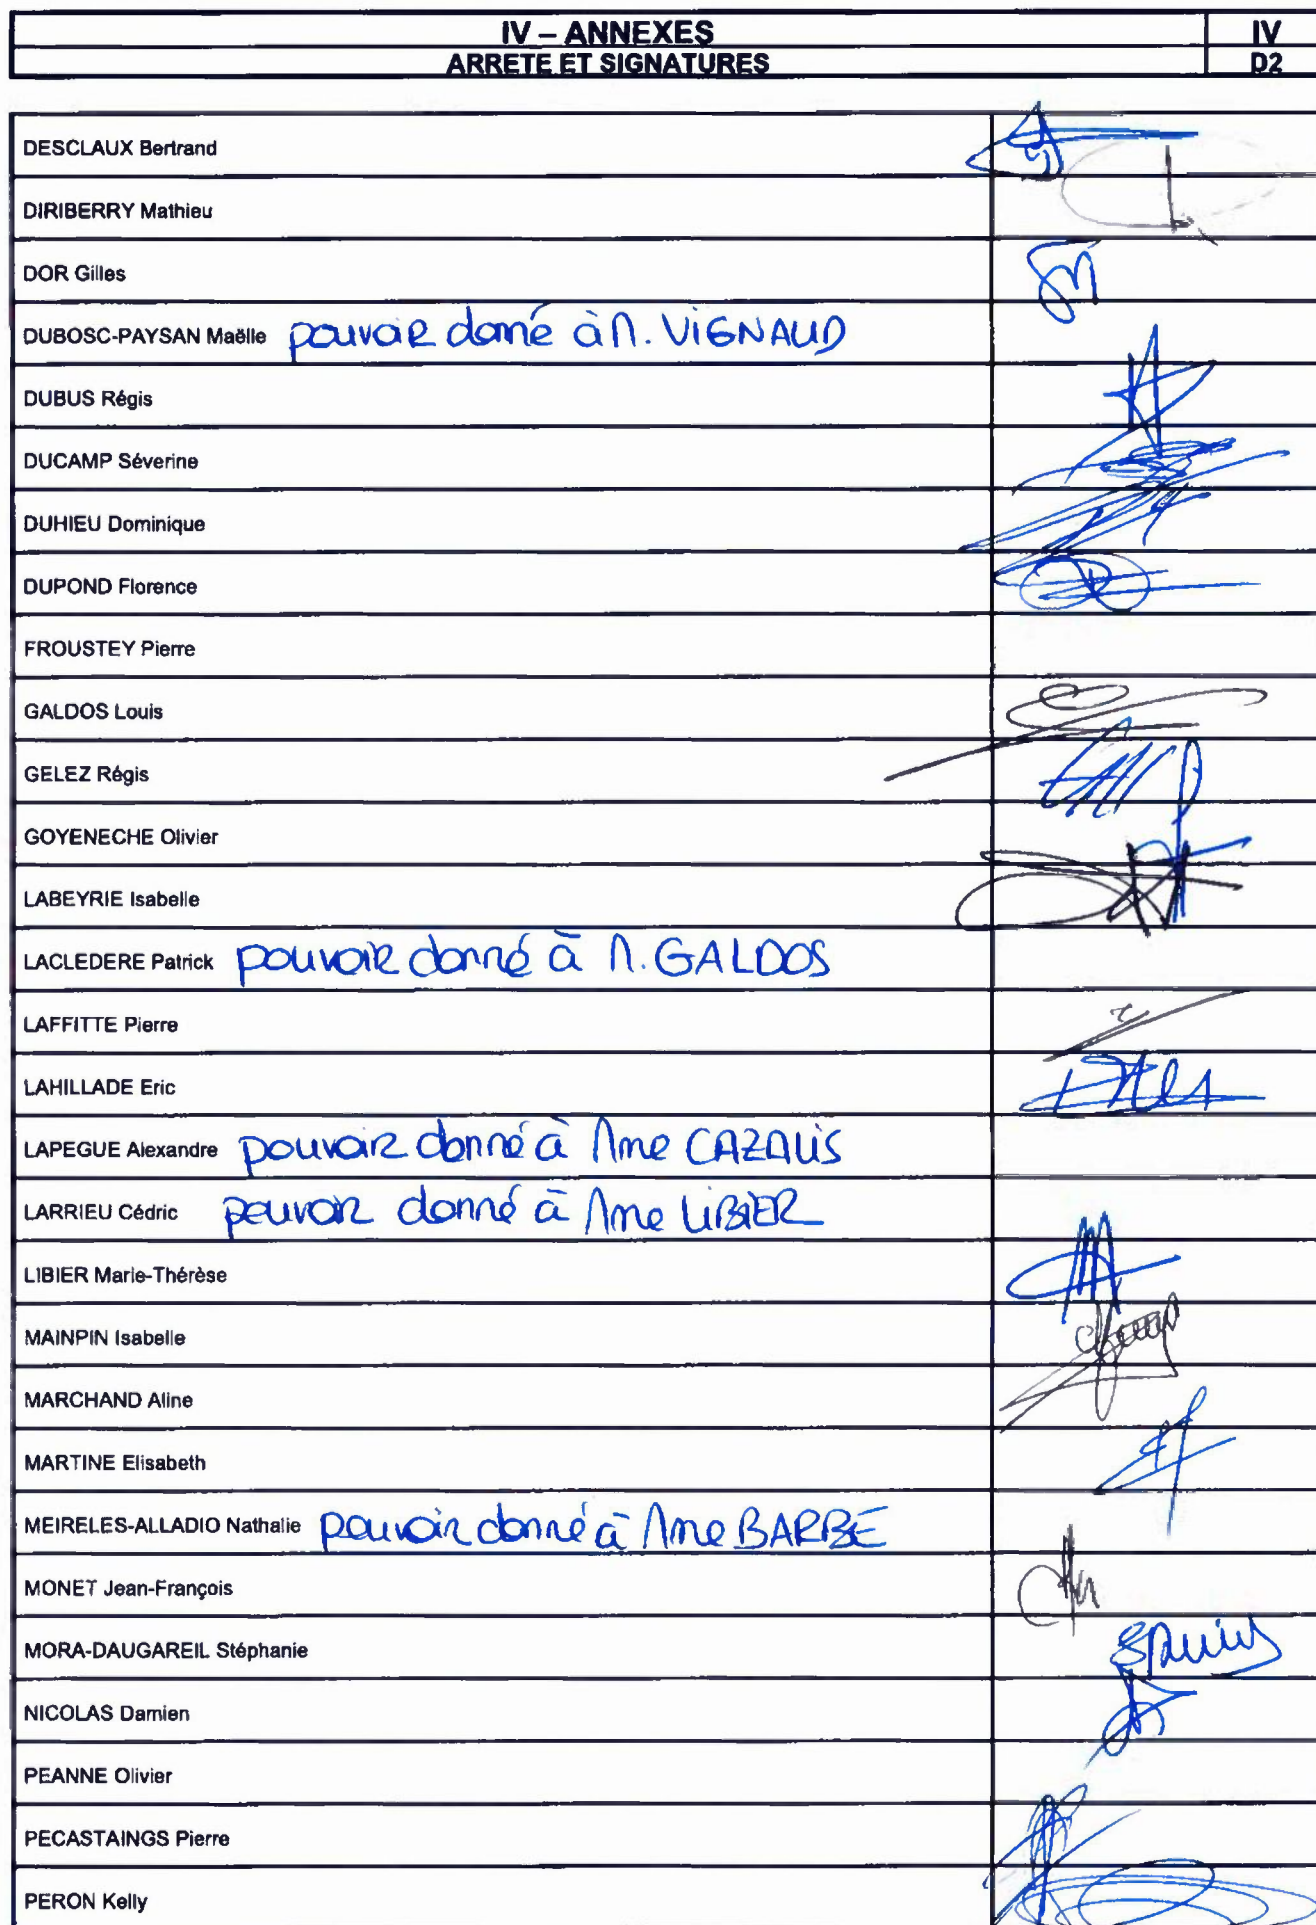 IV – ANNEXES
IV
ARRETE ET SIGNATURES
D2
DESCLAUX Bertrand
DIRIBERRY Mathieu
DOR Gilles
DUBOSC-PAYSAN Maëlle pouvoir donné à M. VIGNAUD
DUBUS Régis
DUCAMP Séverine
DUHIEU Dominique
DUPOND Florence
FROUSTEY Pierre
GALDOS Louis
GELEZ Régis
GOYENECHE Olivier
LABEYRIE Isabelle
LACLEDERE Patrick pouvoir donné à M. GALDOS
LAFFITTE Pierre
LAHILLADE Eric
LAPEGUE Alexandre pouvoir donné à Mme CAZALIS
LARRIEU Cédric pouvoir donné à Mme LIBIER
LIBIER Marie-Thérèse
MAINPIN Isabelle
MARCHAND Aline
MARTINE Elisabeth
MEIRELES-ALLADIO Nathalie pouvoir donné à Mme BARBE
MONET Jean-François
MORA-DAUGAREIL Stéphanie
NICOLAS Damien
PEANNE Olivier
PECASTAINGS Pierre
PERON Kelly